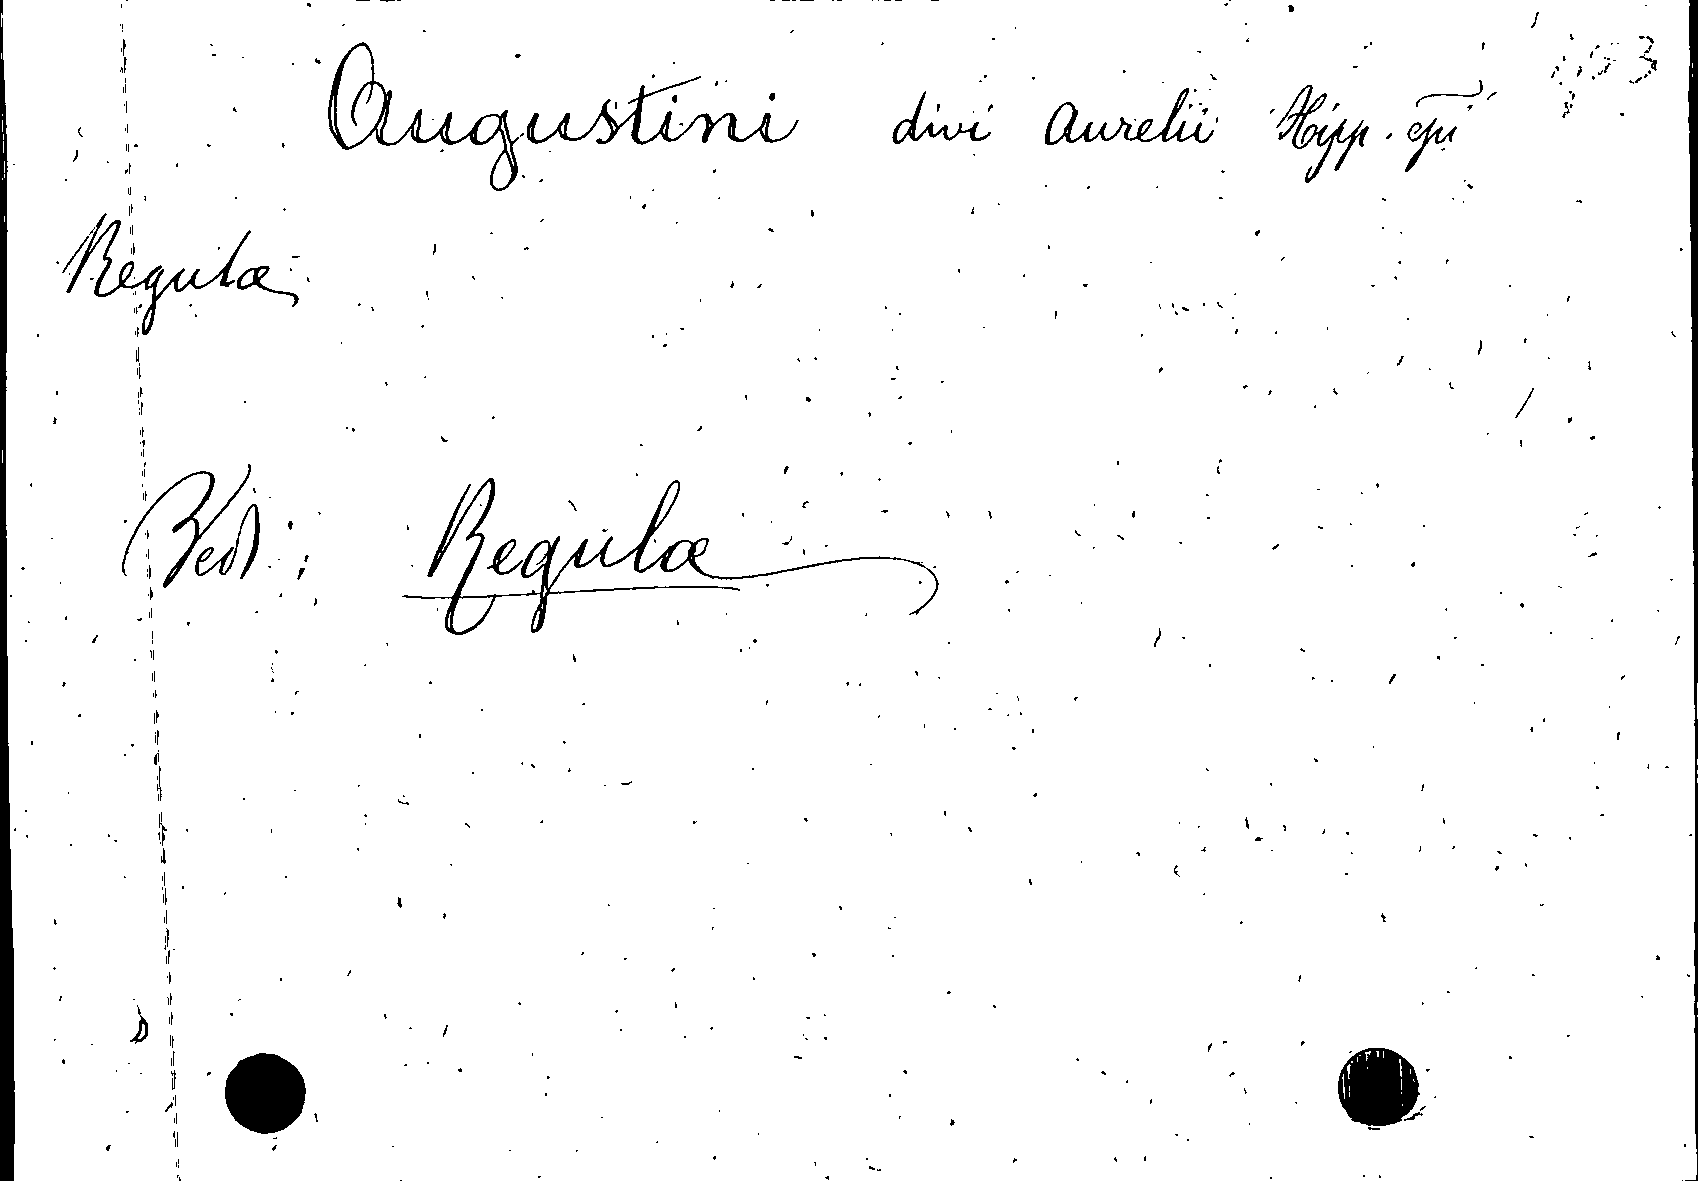 Augustini divi Aurelii Hipp. epi
Regulæ
Vedi: Regulæ